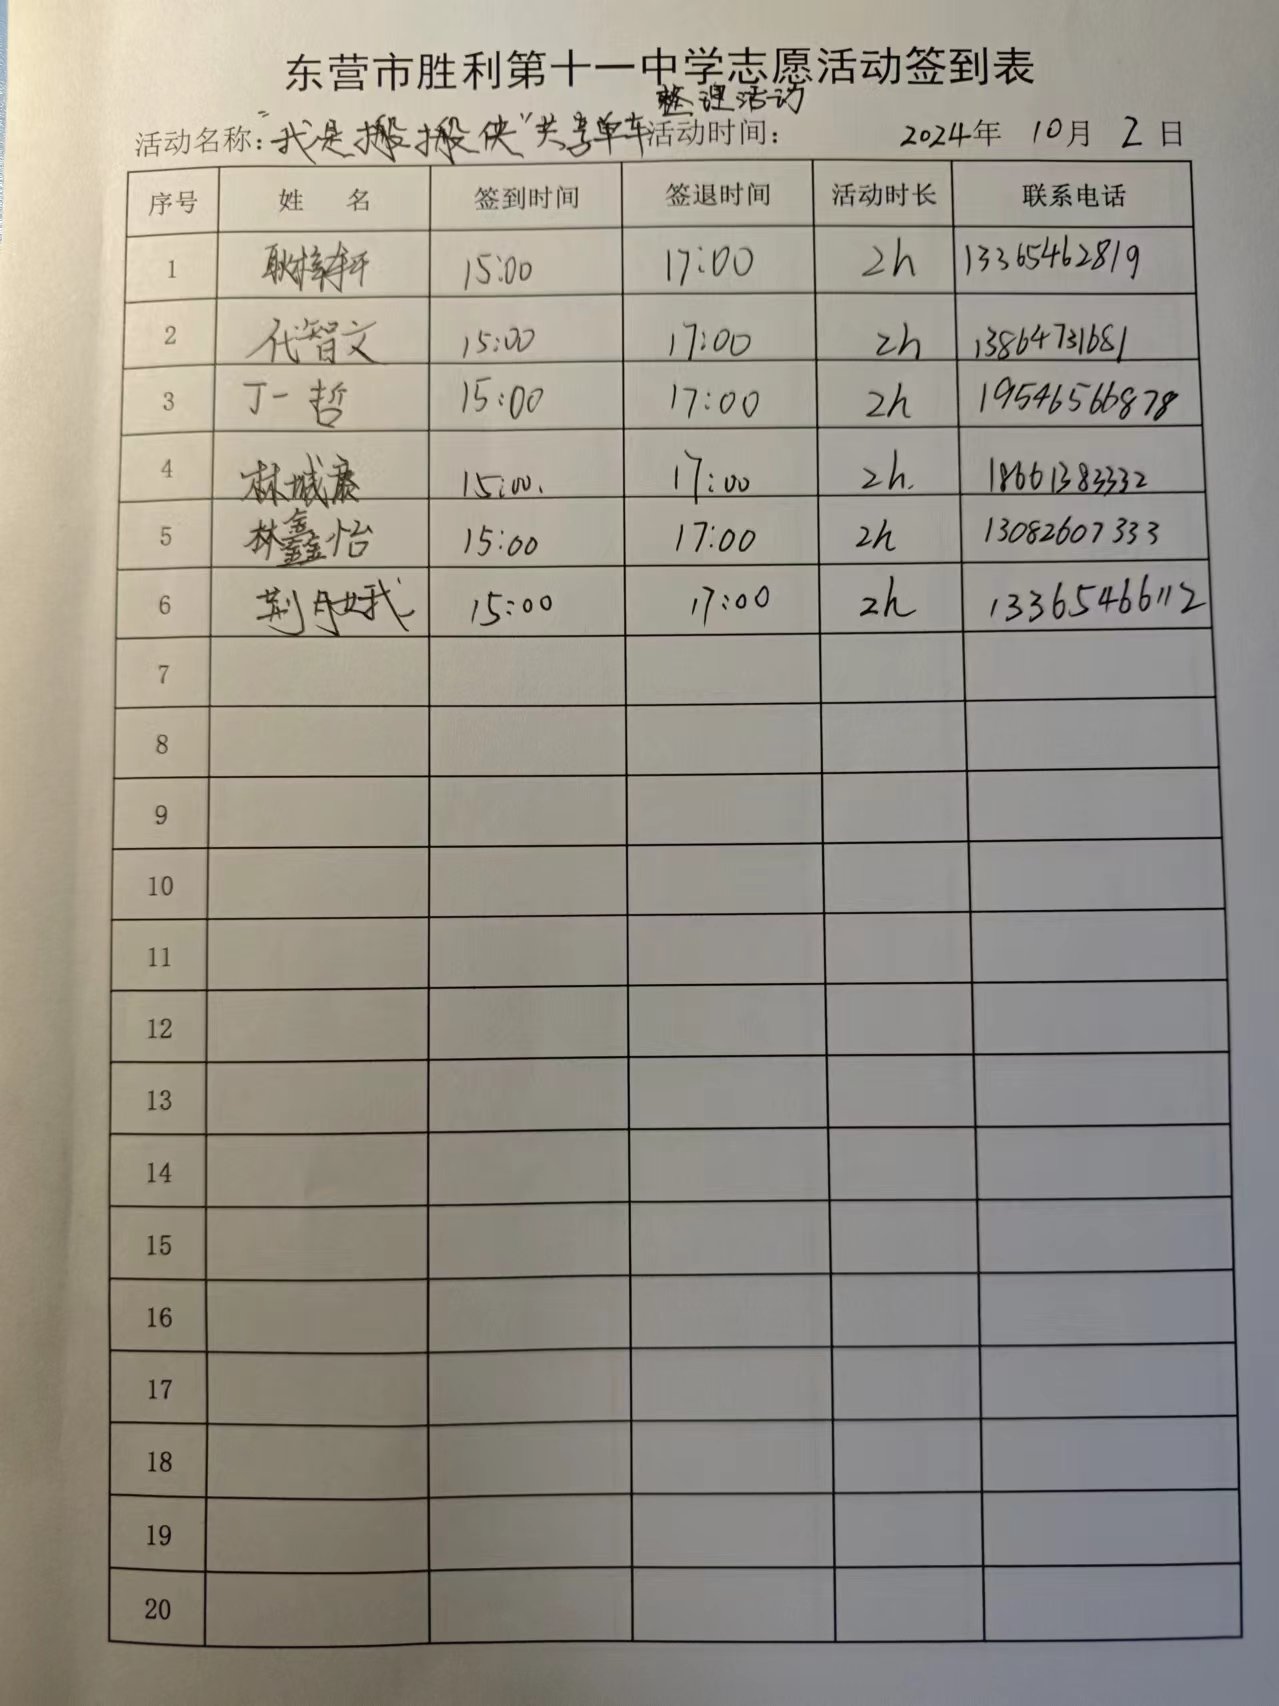 东营市胜利第十一中学志愿活动签到表
整理活动
活动名称："我是搬搬侠"共享单车活动时间： 2024年 10月 2日
序号 姓 名 签到时间 签退时间 活动时长 联系电话
1 耿梓轩 15:00 17:00 2h 13365462819
2 代智文 15:00 17:00 2h 13864731681
3 丁一哲 15:00 17:00 2h 19546566878
4 林城赓 15:00. 17:00 2h. 18661383332
5 林鑫怡 15:00 17:00 2h 13082607333
6 荆月娥 15:00 17:00 2h 13365466112
7
8
9
10
11
12
13
14
15
16
17
18
19
20